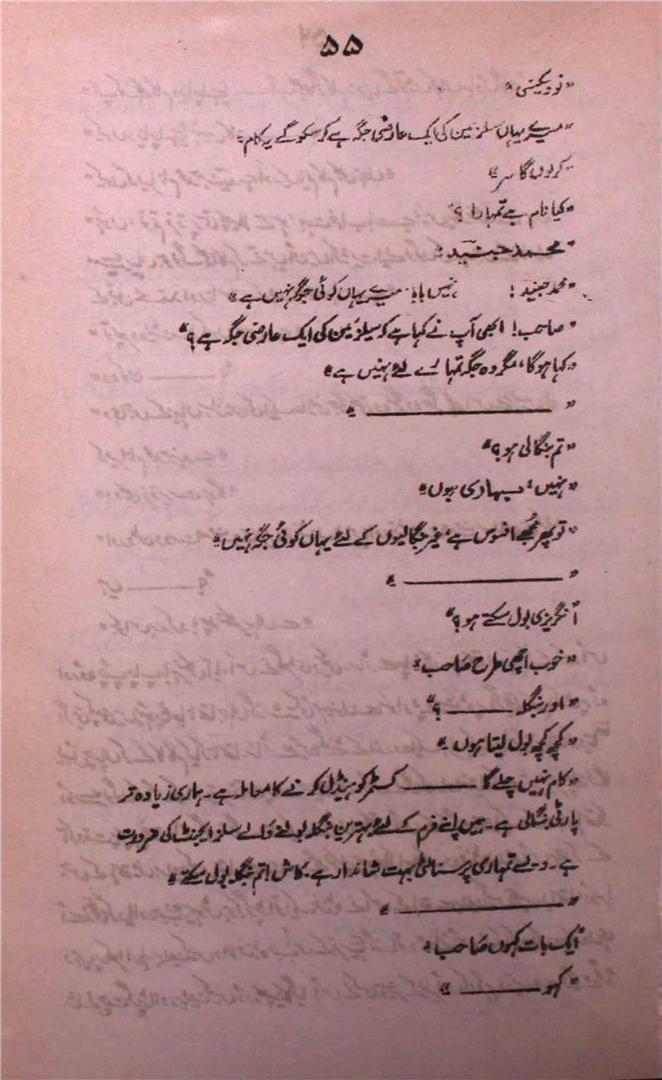 ۵۵
"نو ویکنسی"
"میرے یہاں سلز مین کی ایک عارضی جگہ ہے کر سکو گے یہ کام؟
"کر لوں گا سر"
"کیا نام ہے تمہارا ؟"
"محمد جنید"
"محمد جنید! نہیں بابا میرے یہاں کوئی جگہ نہیں ہے"
"صاحب! ابھی آپ نے کہا ہے کہ سیلز مین کی ایک عارضی جگہ ہے؟"
"کہا ہوگا، مگر وہ جگہ تمہارے لئے نہیں ہے"
"ــــــــــــ"
"تم بنگالی ہو؟"
"نہیں، بہاری ہوں"
"تو پھر مجھے افسوس ہے، غیر بنگالیوں کے لئے یہاں کوئی جگہ نہیں"
"ــــــــــــ"
"انگریزی بول سکتے ہو؟"
"خوب اچھی طرح صاحب"
"اور بنگلہ ــــــــ ؟"
"کچھ کچھ بول لیتا ہوں"
"کام نہیں چلے گا ــــــــ کسٹمر کو ہینڈل کرنے کا معاملہ ہے۔ ہماری زیادہ تر
پارٹی بنگالی ہے۔ ہمیں اپنے فرم کے لئے بہترین بنگلہ بولنے والے سلز ایجنٹ کی ضرورت
ہے۔ ویسے تمہاری پرسنالٹی بہت شاندار ہے۔ کاش! تم بنگلہ بول سکتے"
"ــــــــــــ"
"ایک بات کہوں صاحب"
"کہو ــــــــ"